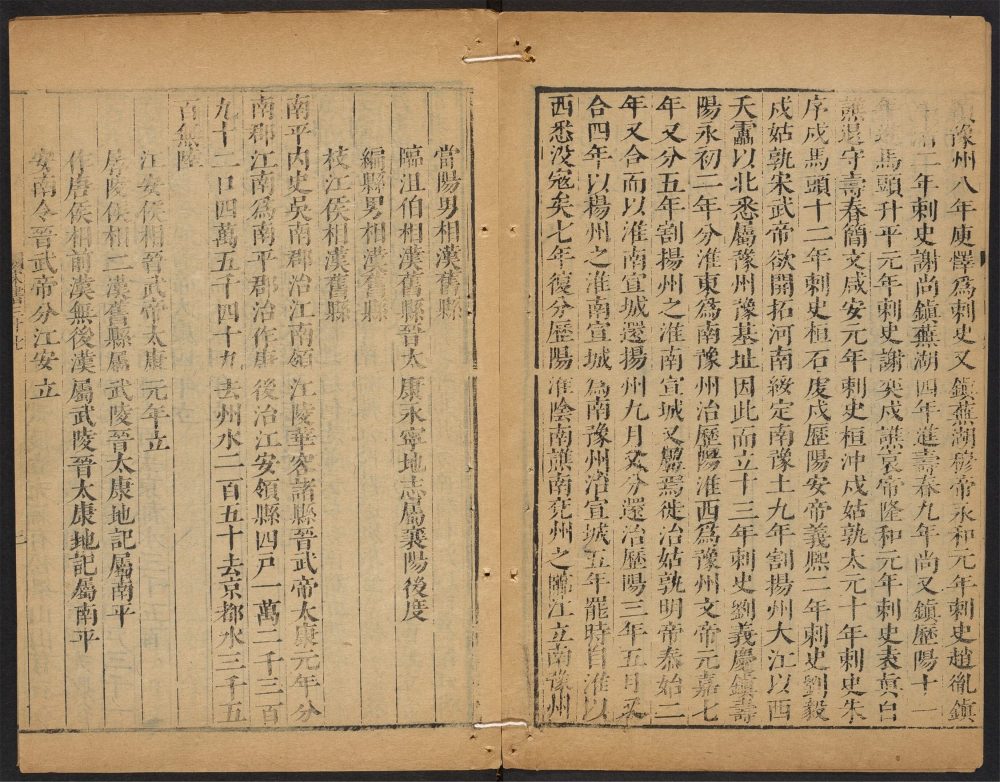 豫州八年庾懌爲刺史又鎮蕪湖穆帝永和元年刺史趙胤鎮
二年刺史謝尚鎮蕪湖四年進壽春九年尚又鎮歷陽十一
馬頭升平元年刺史謝奕戍譙哀帝隆和元年刺史袁真自
譙退守壽春簡文咸安元年刺史桓沖戍姑孰太元十年刺史朱
序戍馬頭十二年刺史桓石虔戍歷陽安帝義熙二年刺史劉毅
戍姑孰宋武帝欲開拓河南綏定南豫土九年割揚州大江以西
大雷以北悉屬豫州豫基址因此而立十三年刺史劉義慶鎮壽
陽永初二年分淮東爲南豫州治歷陽淮西爲豫州文帝元嘉七
年又分五年割揚州之淮南宣城又屬焉徙治姑孰明帝泰始二
年又合而以淮南宣城還揚州九月又分還治歷陽三年五月又
合四年以楊州之淮南宣城爲南豫州治宣城五年罷時自淮以
西悉没寇矣七年復分歷陽淮陰南譙南兗州之臨江立南豫州
當陽男相漢舊縣
臨沮伯相漢舊縣晉太康永寧地志屬襄陽後度
編縣男相漢舊縣
枝江侯相漢舊縣
南平内史吳南郡治江南領江陵華容諸縣晉武帝太康元年分
南郡江南爲南平郡治作唐後治江安領縣四戸一萬二千三百
九十二口四萬五千四十九去州水二百五十去京都水三千五
百無陸
江安侯相晉武帝太康元年立
孱陵侯相二漢舊縣屬武陵晉太康地記屬南平
作唐侯相前漢無後漢屬武陵晉太康地記屬南平
安南令晉武帝分江安立